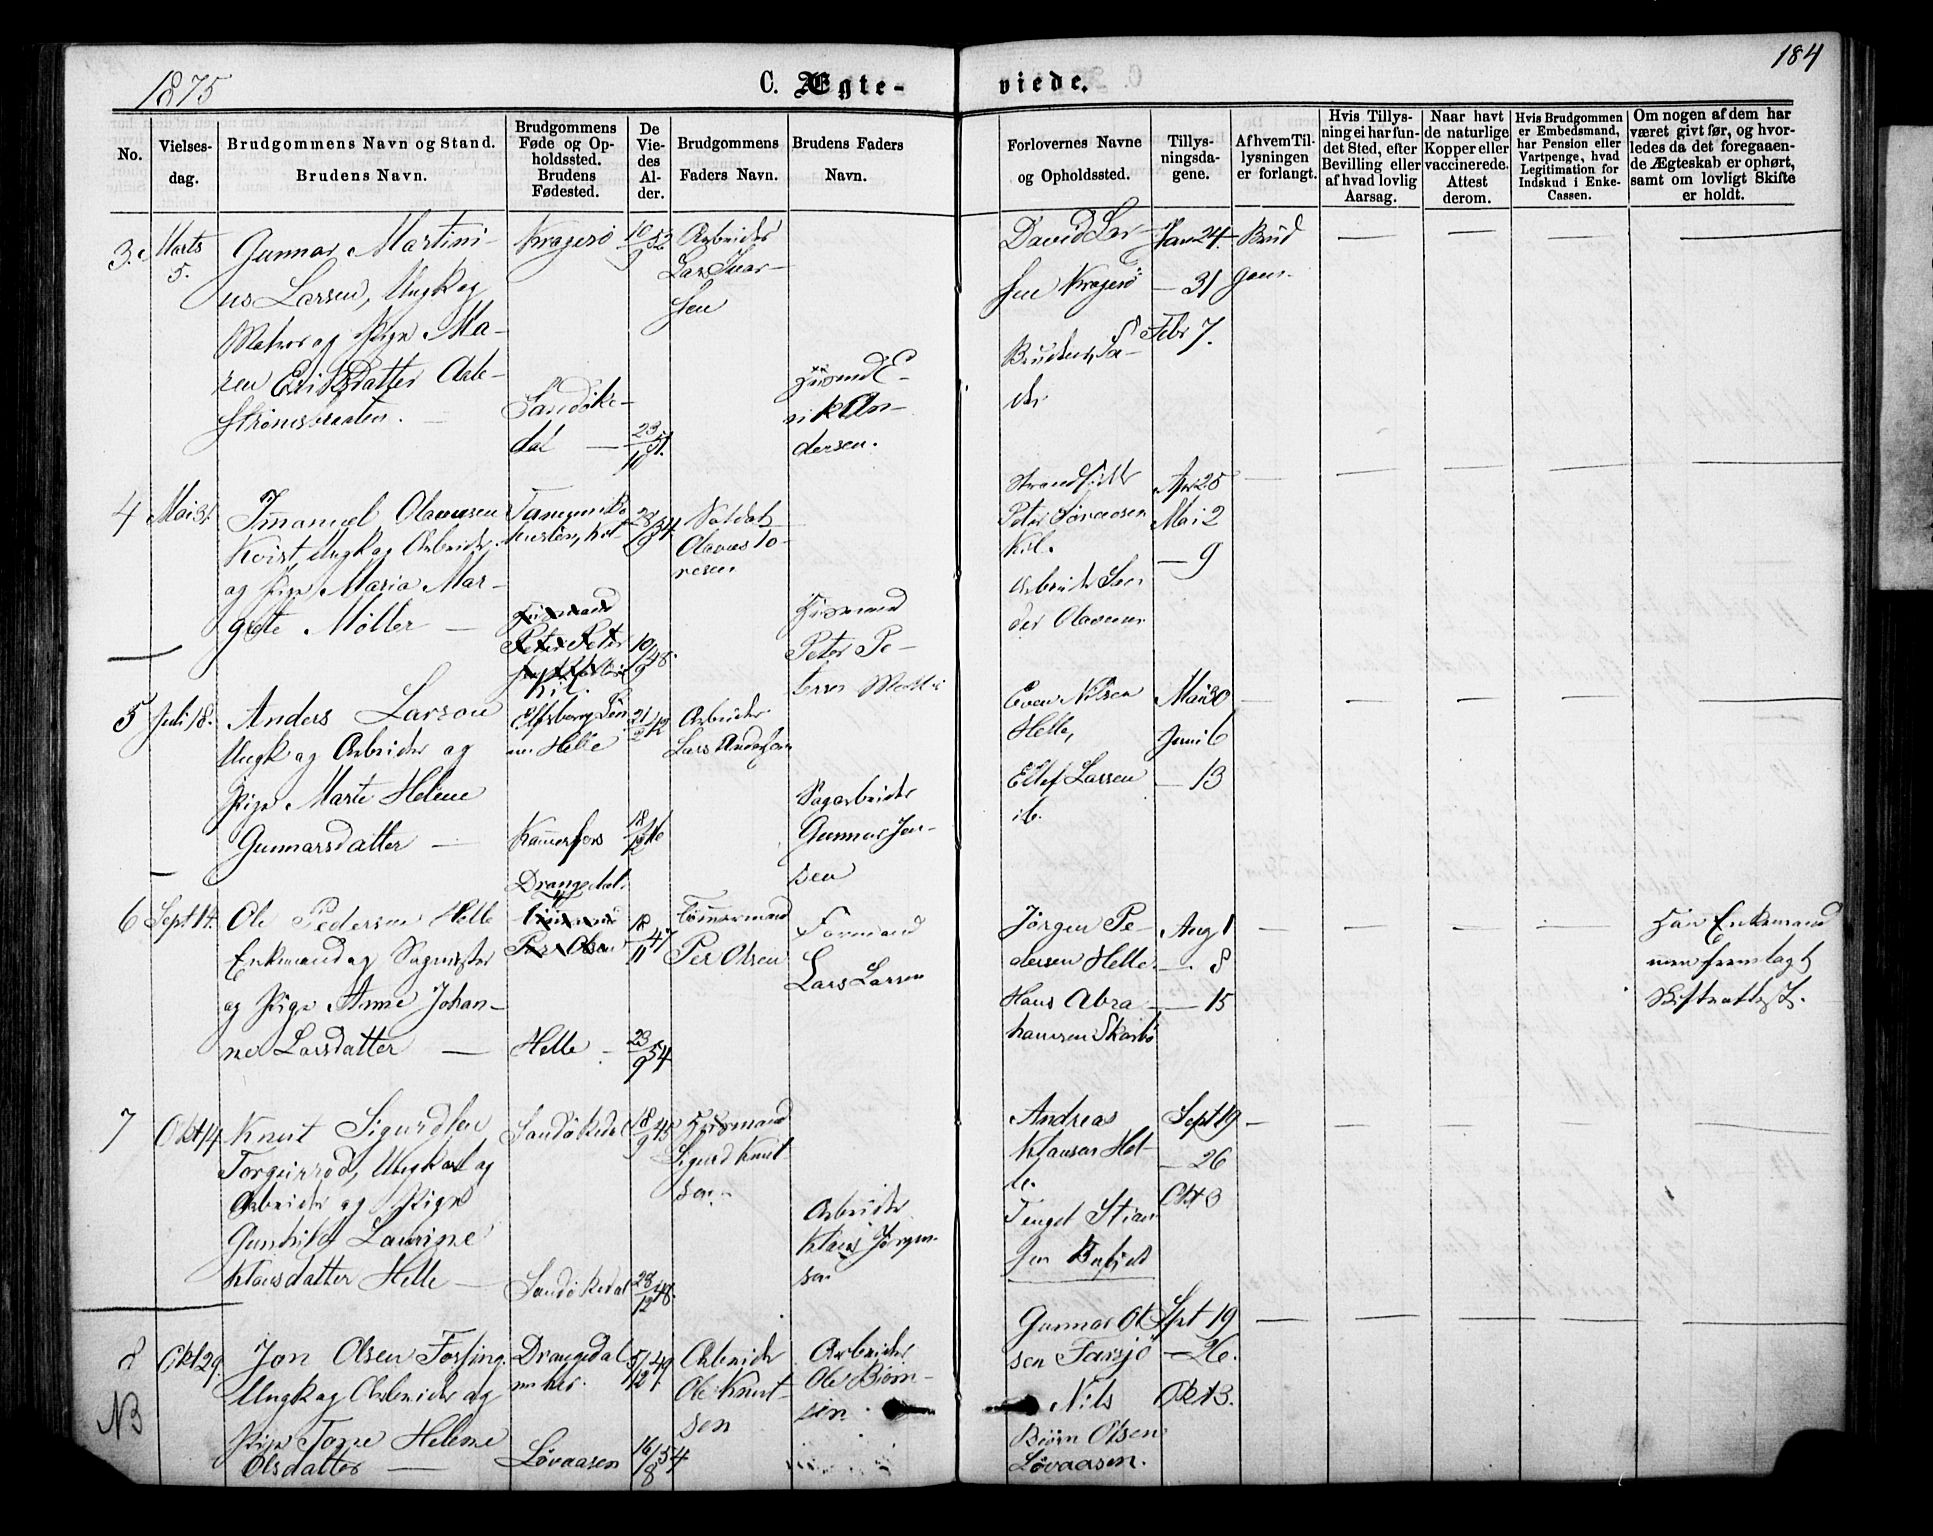 1875
C. Ægte-
viede.
184
No.
Vielses-
dag.
Brudgommens Navn og Stand.
Brudens Navn.
Brudgommens
Føde og Op-
holdssted.
Brudens
Fødested.
De
Vie-
des
Al-
der.
Brudgommens
Faders Navn.
Brudens Faders
Navn.
Forlovernes Navne
og Opholdssted.
Tillys-
ningsda-
gene.
Af hvem Til-
lysningen
er forlangt.
Hvis Tillys-
ning ei har fun-
det Sted, efter
Bevilling eller
af hvad lovlig
Aarsag.
Naar havt
de naturlige
Kopper eller
vaccinerede.
Attest
derom.
Hvis Brudgommen
er Embedsmand,
har Pension eller
Vartpenge, hvad
Legitimation for
Indskud i Enke-
Cassen.
Om nogen af dem har
været givt før, og hvor-
ledes da det foregaaen-
de Ægteskab er ophørt,
samt om lovligt Skifte
er holdt.
3.
Marts
5.
Gunnar Martini-
us Larsen, Ungk og
Matros og Pige Ma-
ren Eriksdatter Aale-
strømsbraaten.
Kragerø
Sandøke-
dal
10/9 52
23/10 51.
Arbeider
Lars Ivar-
sen
Husmd E-
rik An-
dersen.
David Lar-
sen Kragerø
Brudens Fa-
der
Jan 24.
— 31
Febr 7.
Brud
gom.
4
Mai 31.
Immanuel Olavesen
Kvist, Ungk og Arbeider
og Pige Maria Mar-
grete Møller —
Kil.
28/9 34
10/9 48.
Soldat
Olaves To-
resen
Husmand
Peter Pe-
tersen
Strandsidder
Peter Løvaasen
Kil.
Arbeider
Olavesen
Apr 25
Mai 2
— 9
5
Juli 18.
Anders Larson
Ungk og Arbeider og
Pige Marte Helene
Gunnarsdatter —
Elfsborg Len
Helle
Kammerfos
Drangedal.
21/2 42
Arbeider
Lars Anderson
Sagarbeider
Gunnar Jen-
sen
Even Nilsen
Helle,
Ellef Larsen
ib.
Mai 30
Juni 6
— 13
6
Sept 14.
Ole Pedersen Helle
Enkemand og Sagmester
og Pige Anne Johan-
ne Larsdatter —
Per Olsen
Helle —
47
23/9 54
Tømmermand
Per Olsen
Formand
Lars Larsen
Jørgen Pe-
dersen Helle
Hans Abra-
hamsen
Aug 1
— 8
— 15
Han Enkemand
men fremlagt
Skifteattest.
7
Okt 14
Knut Sigurdsen
Torgeirrød, Ungkarl og
Arbeider og Pige
Gunhild Laurine
Klausdatter Helle —
Sandøkedal
Sandøkedal
18/9 45
28/12 48.
Husmand
Sigurd Knut
sen
Arbeider
Klaus Jørgen-
sen
Andreas
Klausen Hel-
le.
Tengel Stian
sen
Sept 19
— 26
Okt 3
8
NB
Okt 29.
Jon Olsen Fossing
Ungk og Arbeider og
Pige Tone Helene
Olsdatter —
Drangedal
nu her.
Løvaasen
5/12 49.
16/8 54
Arbeider
Ole Knut-
sen
Arbeider
Ole Bjørn-
sen
Gunnar Ol
sen Farsjø
Nils
Bjørn Olsen
Løvaasen.
Sept 19
— 26.
Okt 3.